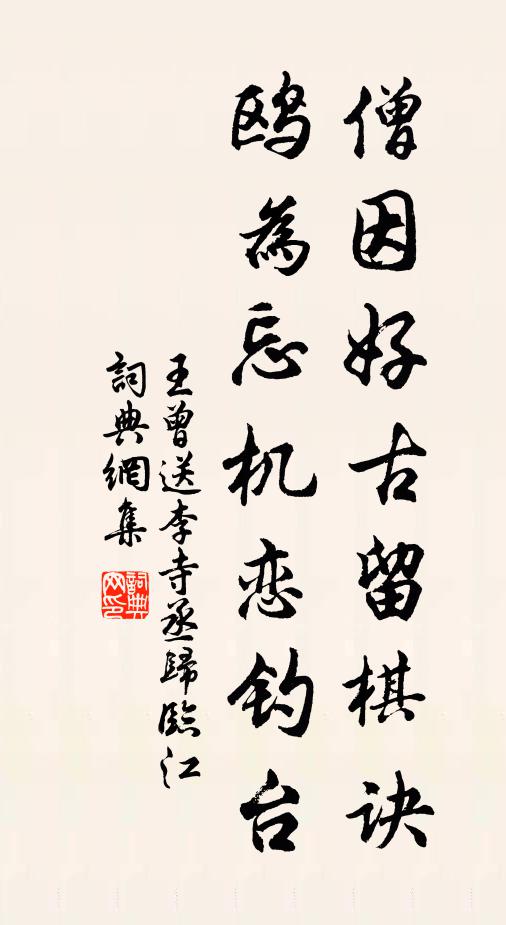 僧因好古留棋诀
鸥為忘机恋钓台
王曾送李寺丞歸臨江
詞典網集
詞典網印